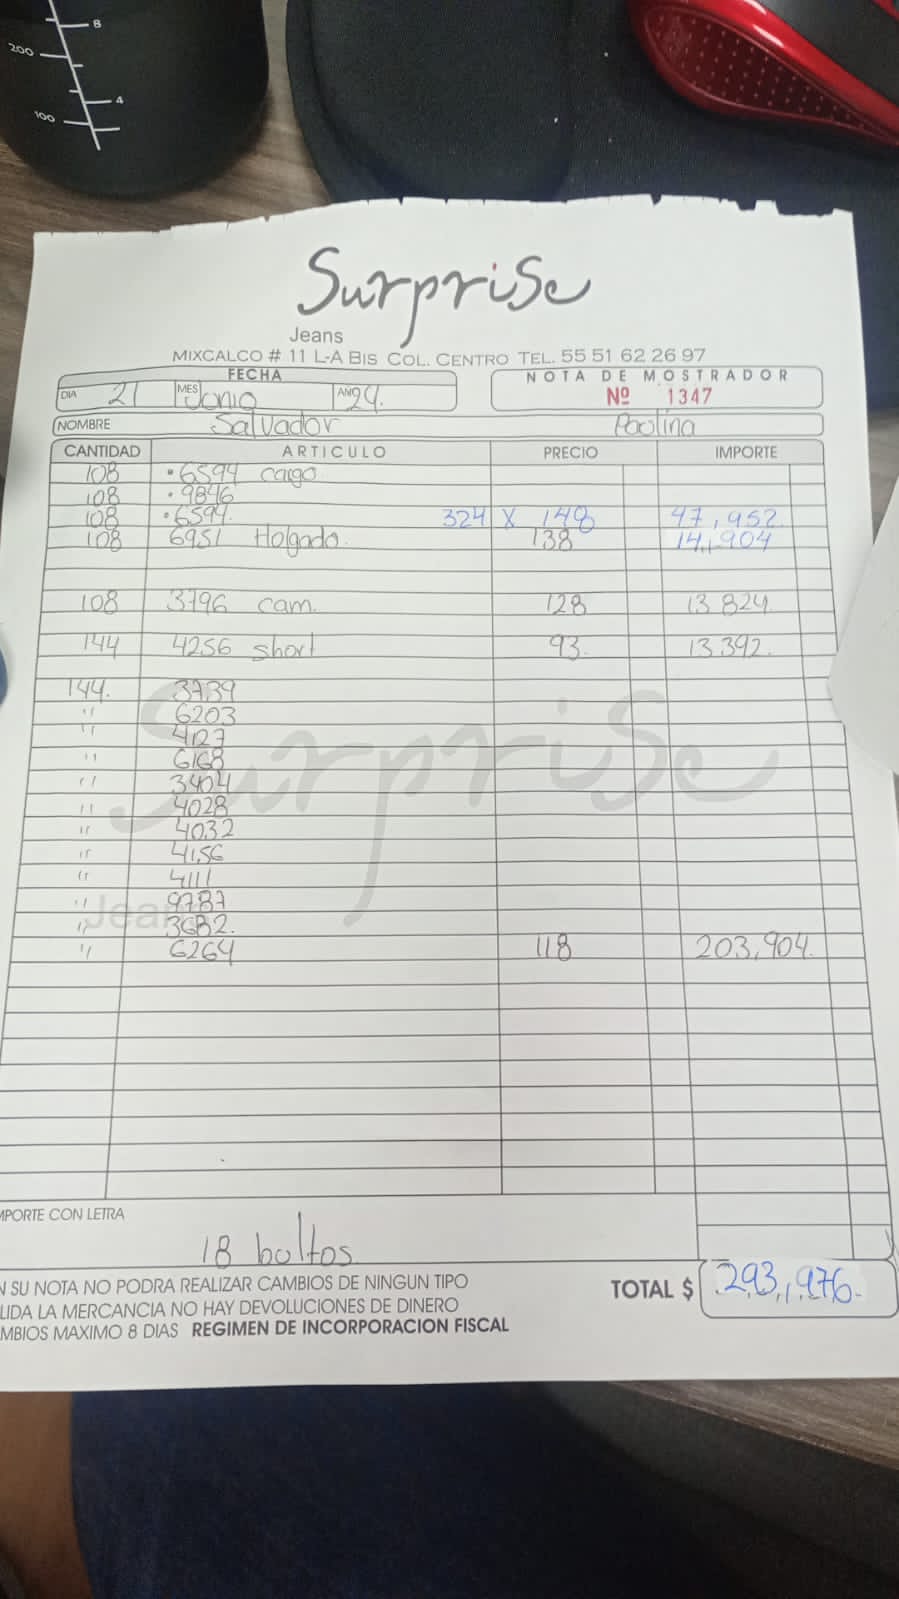 8
200
4
100
Surprise
Jeans
MIXCALCO # 11 L-A BIS COL. CENTRO TEL. 55 51 62 26 97
FECHA
NOTA DE MOSTRADOR
DIA 21 MES Junio AÑO 24.
Nº 1347
NOMBRE Salvador Paolina
CANTIDAD ARTICULO PRECIO IMPORTE
108 • 6594 cargo
108 • 9846
108 • 6594. 324 X 148 47,952.
108 6951 Holgado. 138 14,904
108 3796 cam. 128 13824.
144 4256 short 93. 13392.
144. 3739
" 6203
" 4127
" 6168
" 3404
" 4028
" 4032
" 4156
" 4111
" 9787
" 3682.
" 6264 118 203,904.
Surprise
Jeans
MPORTE CON LETRA
18 bultos.
N SU NOTA NO PODRA REALIZAR CAMBIOS DE NINGUN TIPO
LIDA LA MERCANCIA NO HAY DEVOLUCIONES DE DINERO
MBIOS MAXIMO 8 DIAS REGIMEN DE INCORPORACION FISCAL
TOTAL $ 293,976.